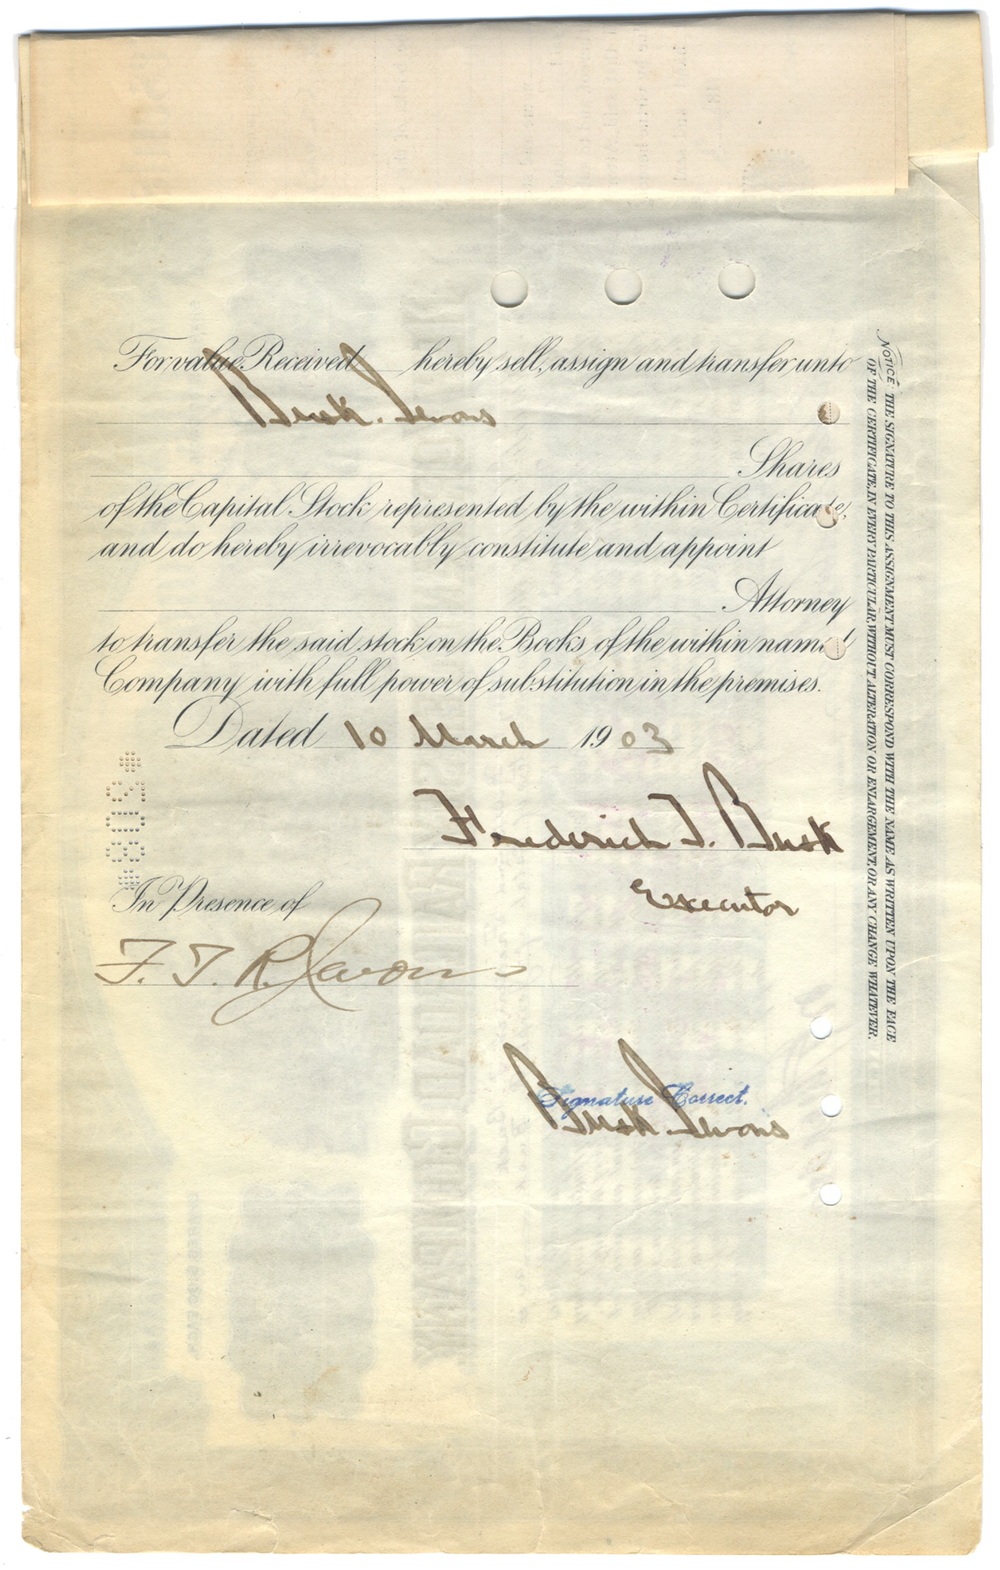 For value Received hereby sell, assign and transfer unto
Busk. Jevons
Shares
of the Capital Stock represented by the within Certificate,
and do hereby irrevocably constitute and appoint
Attorney
to transfer the said stock on the Books of the within named
Company with full power of substitution in the premises.
Dated 10 March 1903
Frederick T. Busk
Executor
In Presence of
F. T. R. Jevons
Signature Correct.
Busk. Jevons
NOTICE THE SIGNATURE TO THIS ASSIGNMENT MUST CORRESPOND WITH THE NAME AS WRITTEN UPON THE FACE
OF THE CERTIFICATE, IN EVERY PARTICULAR, WITHOUT ALTERATION OR ENLARGEMENT, OR ANY CHANGE WHATEVER.